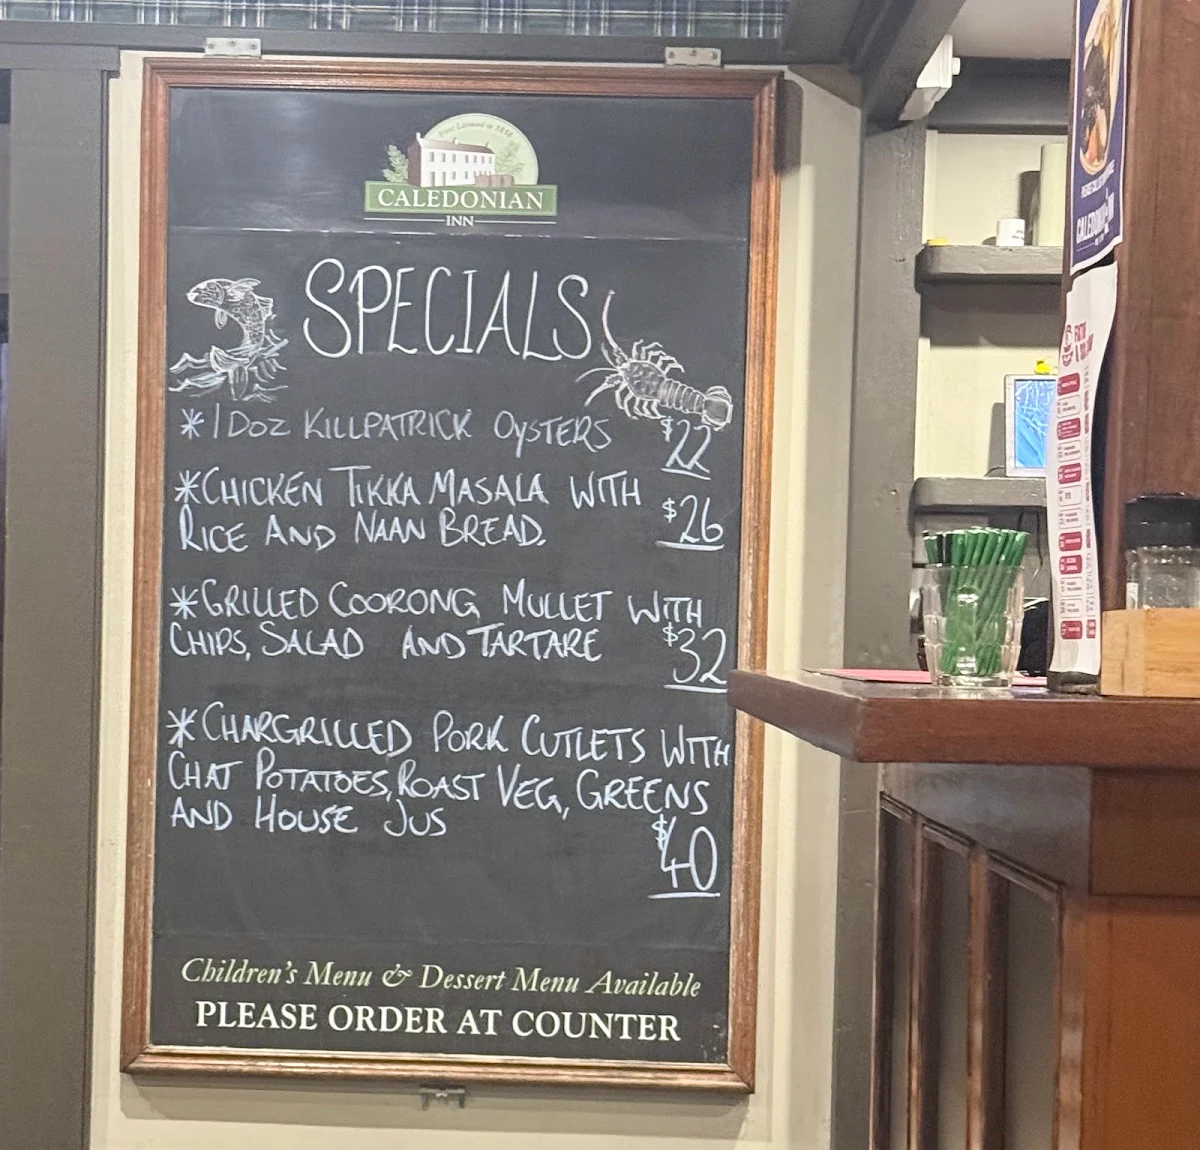 First Licensed in 1858
CALEDONIAN
INN
SPECIALS
*1 DOZ KILLPATRICK OYSTERS $22
*CHICKEN TIKKA MASALA WITH
RICE AND NAAN BREAD. $26
*GRILLED COORONG MULLET WITH
CHIPS, SALAD AND TARTARE $32
*CHARGRILLED PORK CUTLETS WITH
CHAT POTATOES, ROAST VEG, GREENS
AND HOUSE JUS
$40
Children's Menu & Dessert Menu Available
PLEASE ORDER AT COUNTER
CALEDONIAN INN